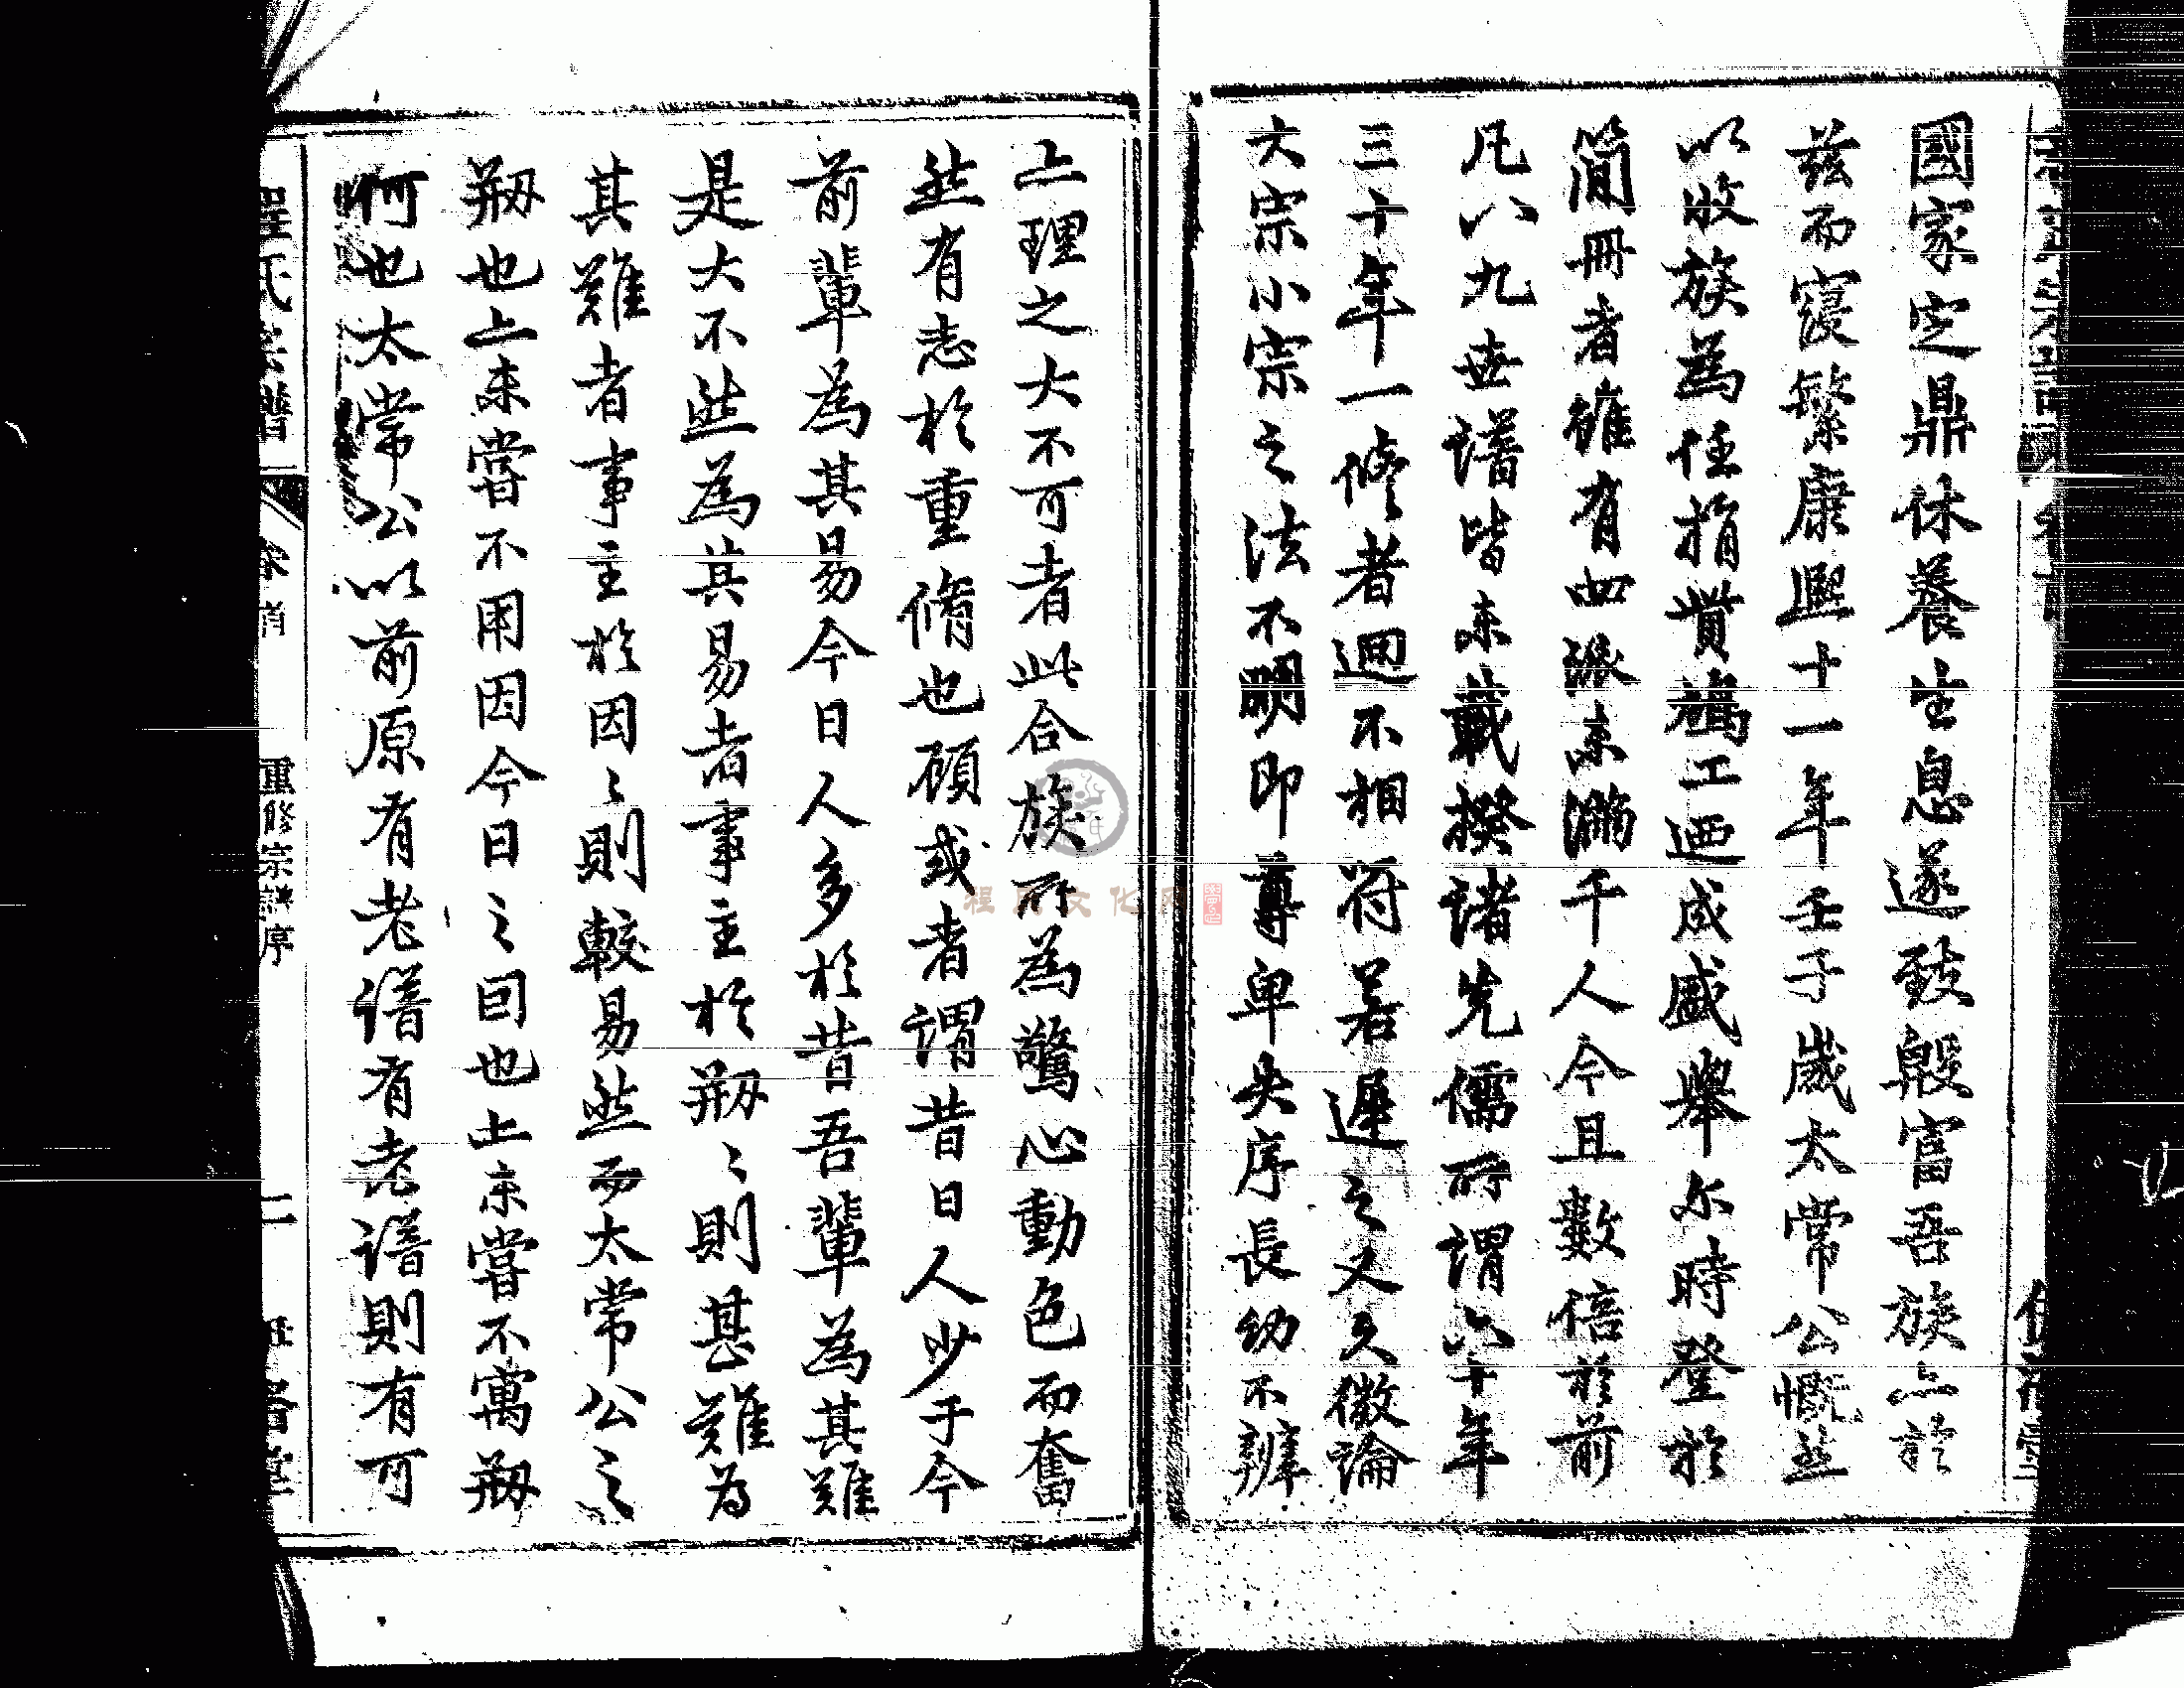 國家定鼎休養生息遂致殷富吾族上於
茲而寖繁康熙十一年壬子歲太常公慨然
以收族爲任捐貲鳩工迺成盛舉尔時登於
簡冊者雖有四派未滿千人今且數倍於前
凡八九世譜皆未載揆諸先儒所謂六十年
三十年一修者迥不相符若遲之又久微論
大宗小宗之法不明即尊卑失序長幼不辨
上理之大大不可者此合族所為驚心動色而奮
然有志於重脩也顧或者謂昔日人少于今
前輩為其易今日人多於昔吾輩為其難
是大不然為其易者事主於剏〻則甚難為
其難者事主於因〻則較易然而太常公之
剏也上未嘗不用因今日之之因也上未嘗不寓剏
何也太常公以前原有老譜有老譜則有可
程氏宗譜
卷首
重修宗譜序
二